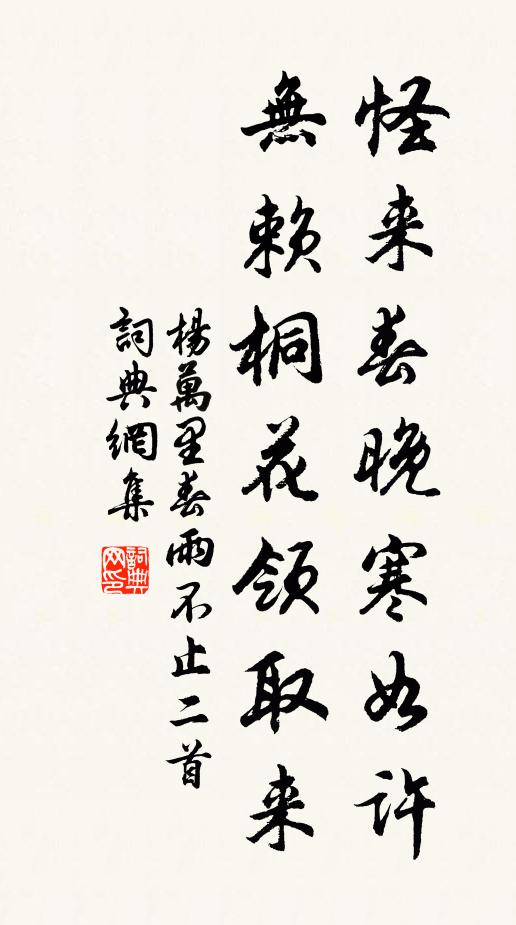 怪来春晚寒如許
無賴桐花領取来
楊萬里春雨不止二首
詞典網集
詞典网印